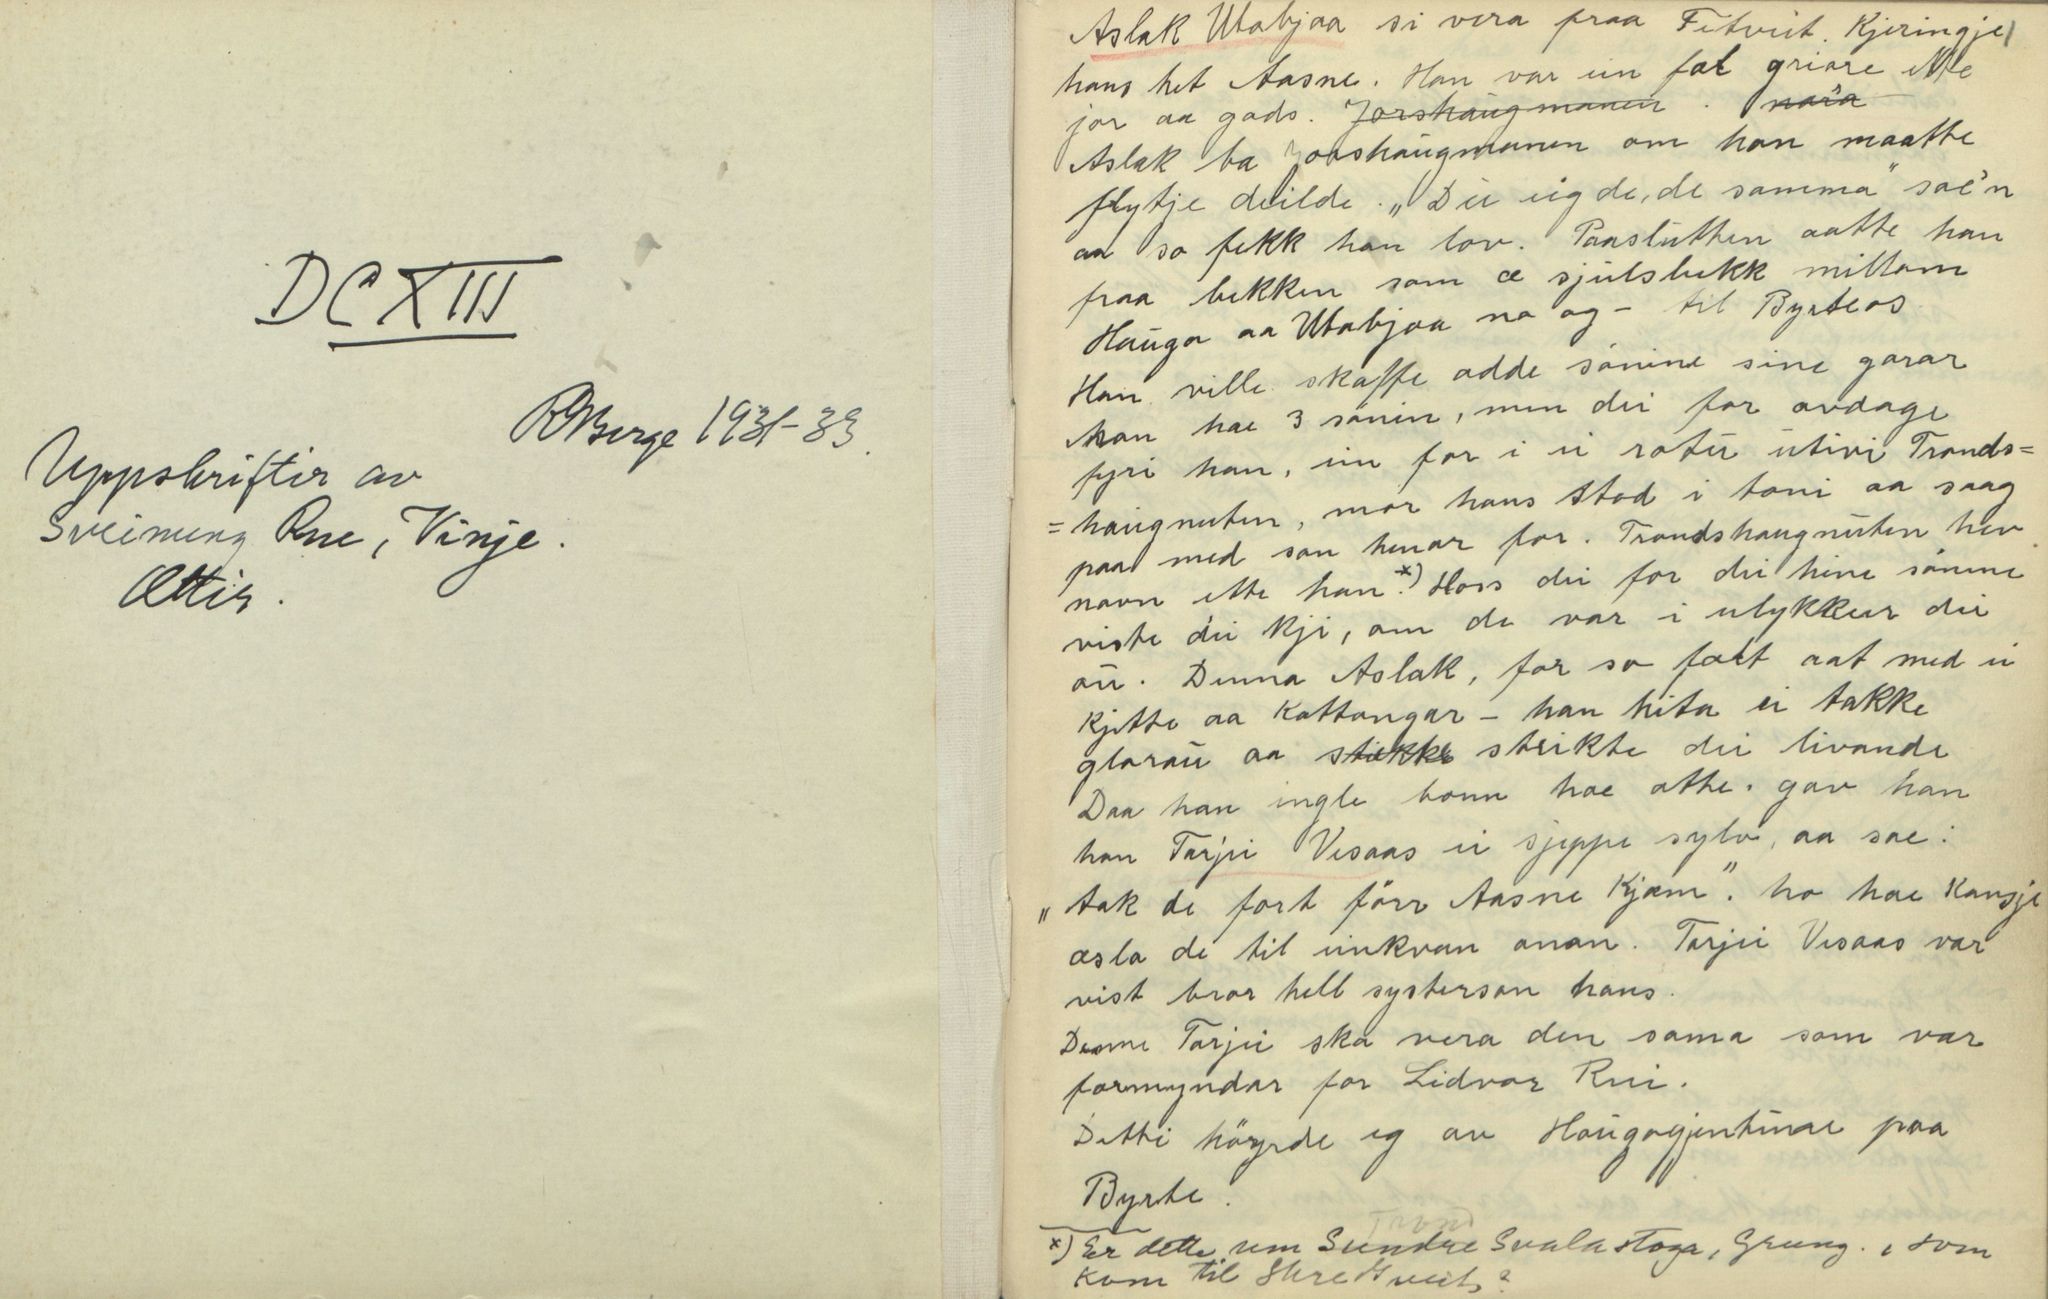 DCXIII
RBerge 1931-33.
Uppskriftir av
Sveinung Rue, Vinje.
Ættir.
Aslak Utabjaa si vera fraa Fitveit. Kjeringje
hans het Aasne. Han var ein fæl griare ette
jor aa gods. Jorshaugmannen . nara
Aslak ba Jorshaugmannen om han maatte
flytje deilde. „Du eig de, de samma" sae'n
aa so fekk han lov. Paaslutten aatte han
fraa bekken som æ sjulsbekk millom
Hauga aa Utabjaa no og - til Byrteos
Han ville skaffe adde sönine sine garar
Han hae 3 sönin, men dei for avdage
fyri han, ein for i ei rotu utivi Tronds=
=haugnuten, mor hans stod i toni aa saag
paa med son hennar for. Trondshaugnuten hev
navn ette han. *) Hoss dei for dei hine sönine
viste dei kji, om de var i ulykkur dei
au. Denna Aslak, for so fælt aat med ei
kjette aa kattongar - han hita ei takke
glorau aa stekke strikte dei livande
Daa han ingle bonn hae atte. gav han
han Tarjei Vesaas ei sjeppe sylv, aa sae:
„tak de fort förr Aasne kjæm". ho hae kansje
æsla de til einkvan anan. Tarjei Vesaas var
vist bror hell systerson hans.
Denne Tarjei ska vera den sama som var
formyndar for Lidvor Rui.
Detti höyrde eg av Haugagjentunae paa
Byrte.
Trond
*) Er dette um Sundre Svalastoga, Grung. , som
kom til Skredtveit?